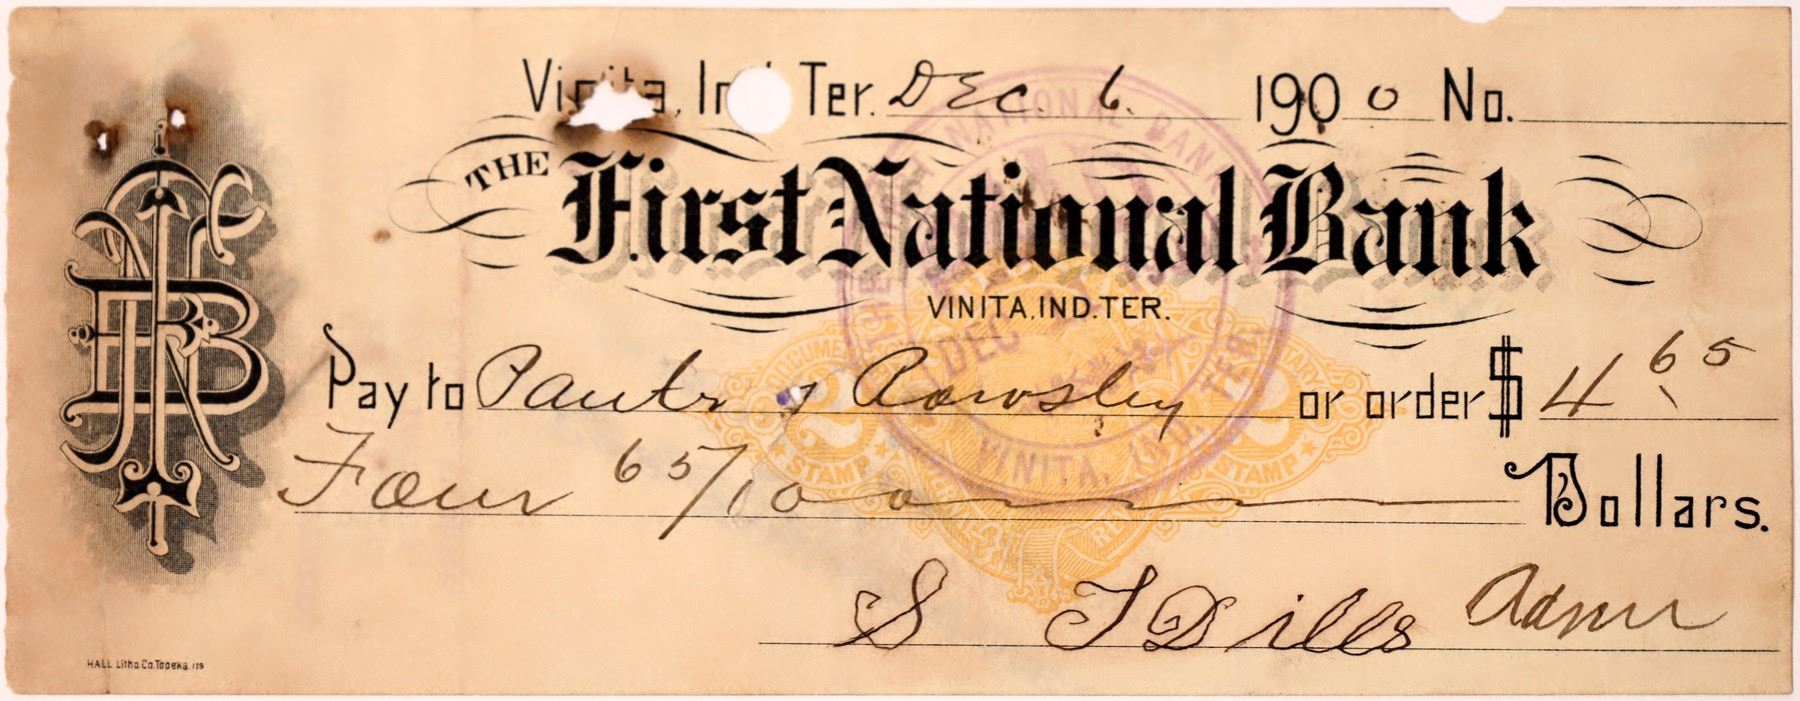 Vinita, Ind Ter. Dec. 6. 1900 No.
THE First National Bank
VINITA, IND. TER.
Pay to & Rowsley or order $ 4 65
Four 65/100 Dollars.
S T Dills Admr
HALL Litho Co. Topeka.
NATIONAL BANK
DEC
VINITA, IND. TER.
DOCUMENTARY
2 2
STAMP STAMP